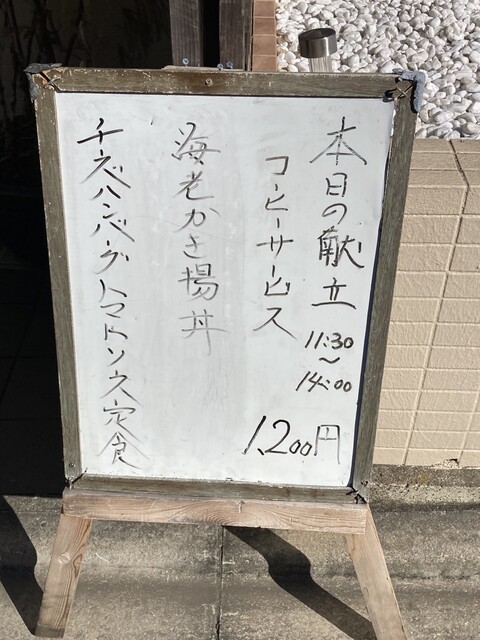 本日の献立
11:30
〜
14:00
コーヒーサービス
1,200円
海老かき揚丼
チーズハンバーグトマトソース定食